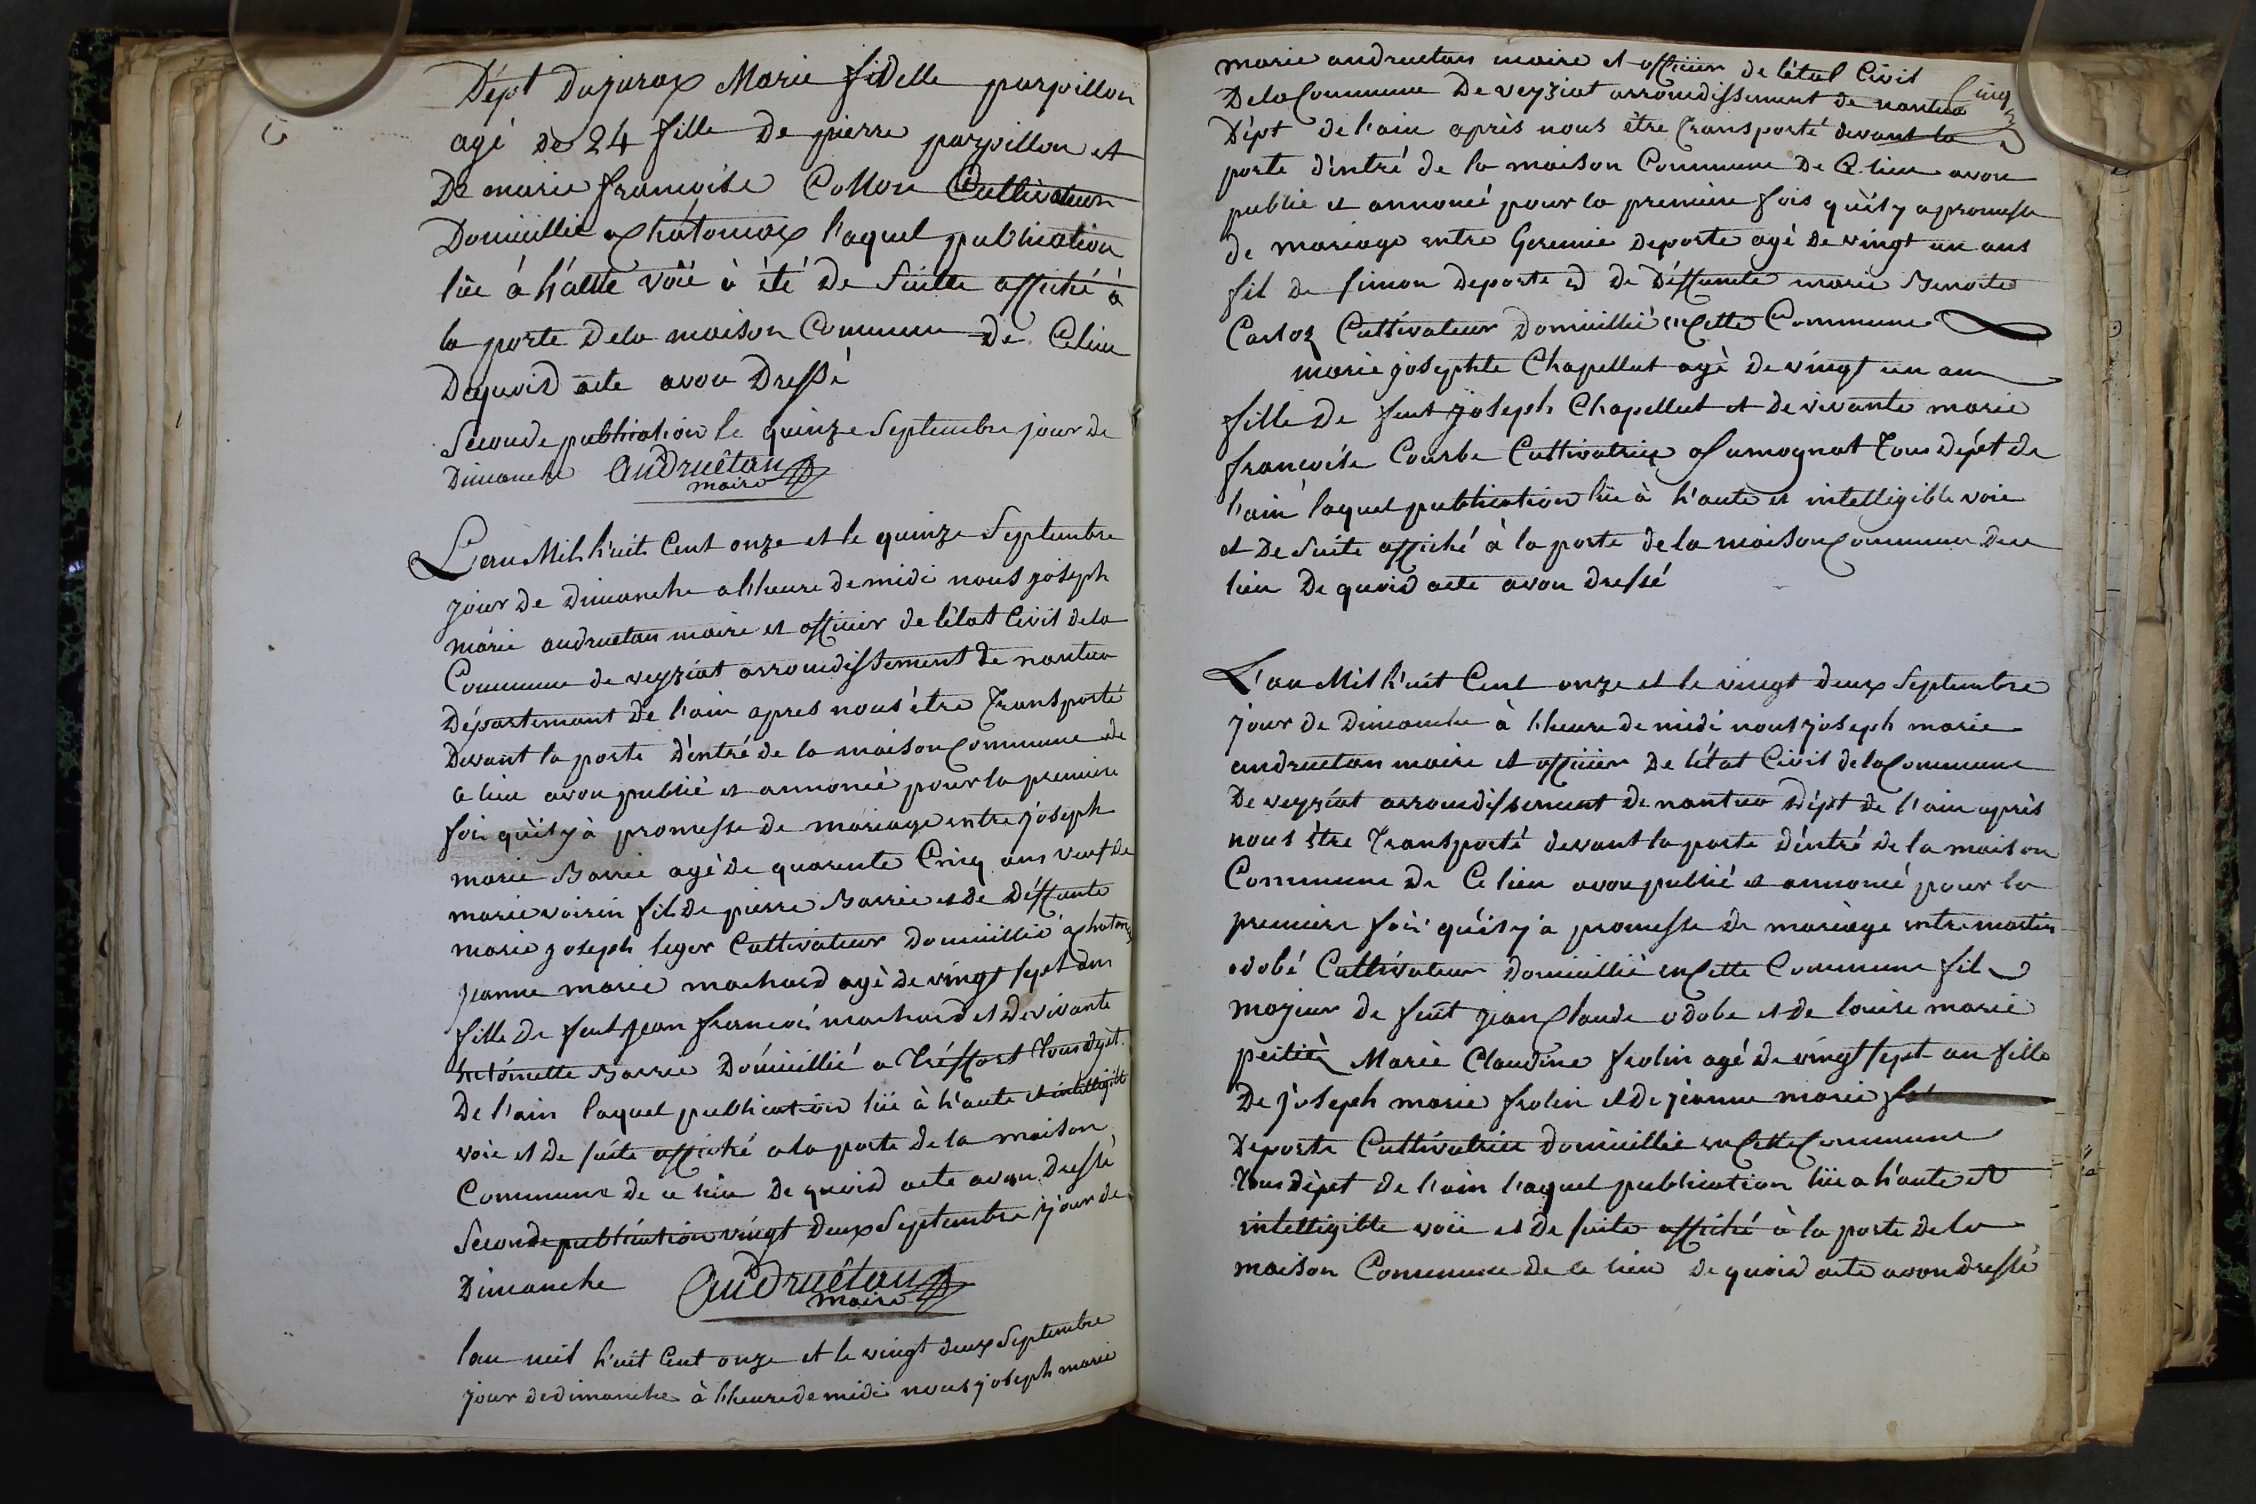 Dépt Dujurax Marie fidelle parpillon
agé de 24 fille De pierre parpillon et
De marie francoise Collon Cultivateur
Domiillié a Chatonax l'aquel publication
lûe á h'alte voie à été De Suitte affiché à
la porte Dela maison Commune De Celieu
Dequoid acte avon Dressé
Seconde publication le quinze Septembre jour de
Dimanche Audruêtan
maire
L'an Mil h'uit Cent onze et le quinze Septembre
jour de Dimanche a l'heure de midi nous joseph
marie audruetan maire et officier de l'état Civil dela
Commune de veyziat arroudissement de nantua
Département de l'ain apres nous être Transporté
Devant la porte d'entré de la maison Commune de
ce lieu avon publié et annoncé pour la premiere
foi qu'il y à promesse de mariage entre joseph
marie Barrié agè de quarente Cinq ans veuf de
marie voisin fil de pierre Barrié et de Déffunte
marie joseph leger Cultivateur Domiillié à Chatonax
jeanne marie machard agè de vingt sept ans
fille de feut jean francoi machard et De vivante
Antoinette Barrie Domiillié a Tréffort Tous dépt
De l'ain laquel publication lüe à h'aute et intelligible
voie et de suite affiché a la porte de la maison
Commune de ce lieu De quoid acte avon Dressé
Seconde publication vingt Deux Septembre jour de
Dimanche Audruêtan
maire
l'an mil h'uit Cent onze et le vingt deux Septembre
jour de dimanche à l'heure de midi nous joseph marie
Cinq
marie audruetan maire et officier de l'état Civil
Dela Commune De veyziat arroudissement de nantua
Dépt de l'ain après nous être Transporté devant la
porte d'entré de la maison Commune De Ce lieu avon
publié et annoncé pour la premiere fois qu'il y a promesse
de mariage entre Geremie Deporte agé De vingt un ans
fil de simon Deporte et de Déffunte marie Benoite
Carloz Cultivateur Domiillié en Cette Commune
marie josephte Chapellut agè De vingt un an
fille De feut joseph Chapellut et de vivante marie
francoise Courbe Cultivatrice a Samognat Tous dépt de
l'ain laquel publication lüe à h'aute et intelligible voie
et De Suite affiché à la porte de la maison Commune De ce
lieu De quoid acte avon dressé
L'an Mil h'uit Cent onze et le vingt deux Septembre
jour de Dimanche à l'heure de midi nous joseph marie
audruetan maire et officier De l'état Civil de la Commune
De veyziat arroudissement de nantua Dépt de l'ain après
nous être Transporté devant la porte d'entré de la maison
Commune de Ce lieu avon publié et annoncé pour la
premiere foi qu'il y à promesse de mariage entre martin
odobé Cultivateur Domiillié en Cette Commune fil
majeur de feut jean Claude odobe et de louise marie
peitié Marie Claudine frolin agé de vingt sept an fille
De joseph marie frolin et De jeanne marie
Deporte Cultivatrice domiillié en Cette Commune
Tous dépt de l'ain l'aquel publication lüe a h'aute et
intelligible voie et De suite affiché à la porte dela
maison Commune de ce lieu De quoid acte avon dressé